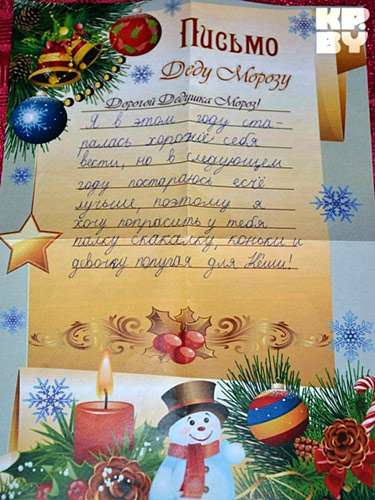 KP.
BY
Письмо
Деду Морозу
Дорогой Дедушка Мороз!
Я в этом году ста-
ралась хорошо себя
вести, но в следующем
году постараюсь ещё
лучше, поэтому я
хочу попрасить у тебя
палку скакалку, коньки и
девочку попугая для Кеши!